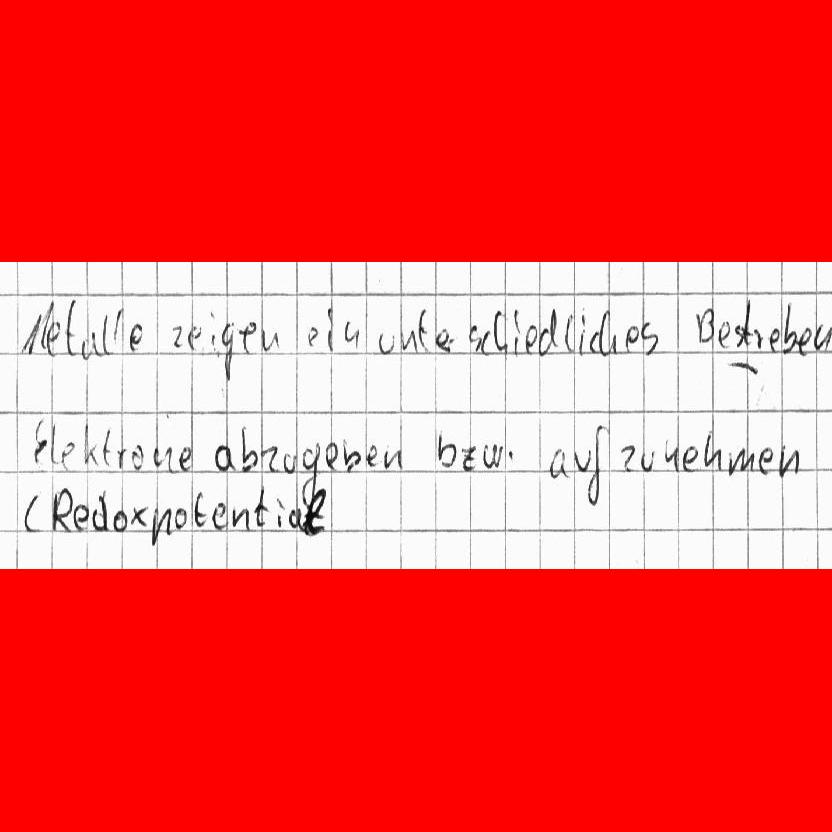 Metalle zeigen ein unterschiedliches Bestreben
Elektrone abzugeben bzw. aufzunehmen
(Redoxpotential